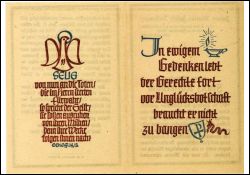 SELIG
von nun an die Toten,
die im Herrn sterben
so spricht der Geist
von ihren Mühen
denn ihre Werke
folgen ihnen nach
In ewigem
Gedenken lebt
der Gerechte fort
vor Unglücksbotschaft
braucht er nicht
zu bangen